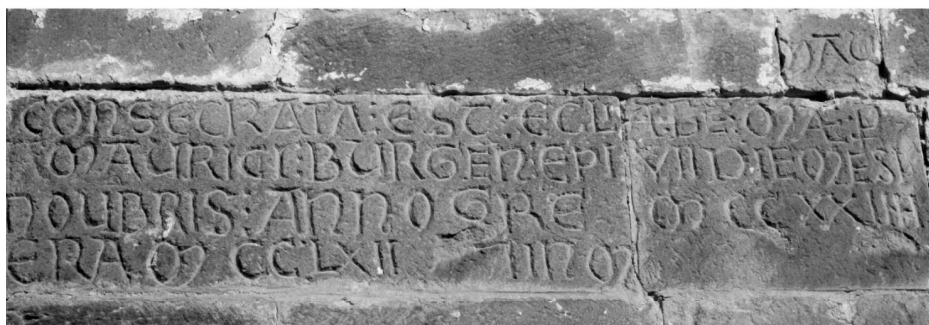 CONSECRATA : EST : ECLIA : DE : OMA : P
MAURICI : BURGEN : EPI VII DIE MESI
NOUBRIS : ANNO GRE M CCXXIIII
ERA M CCLXII